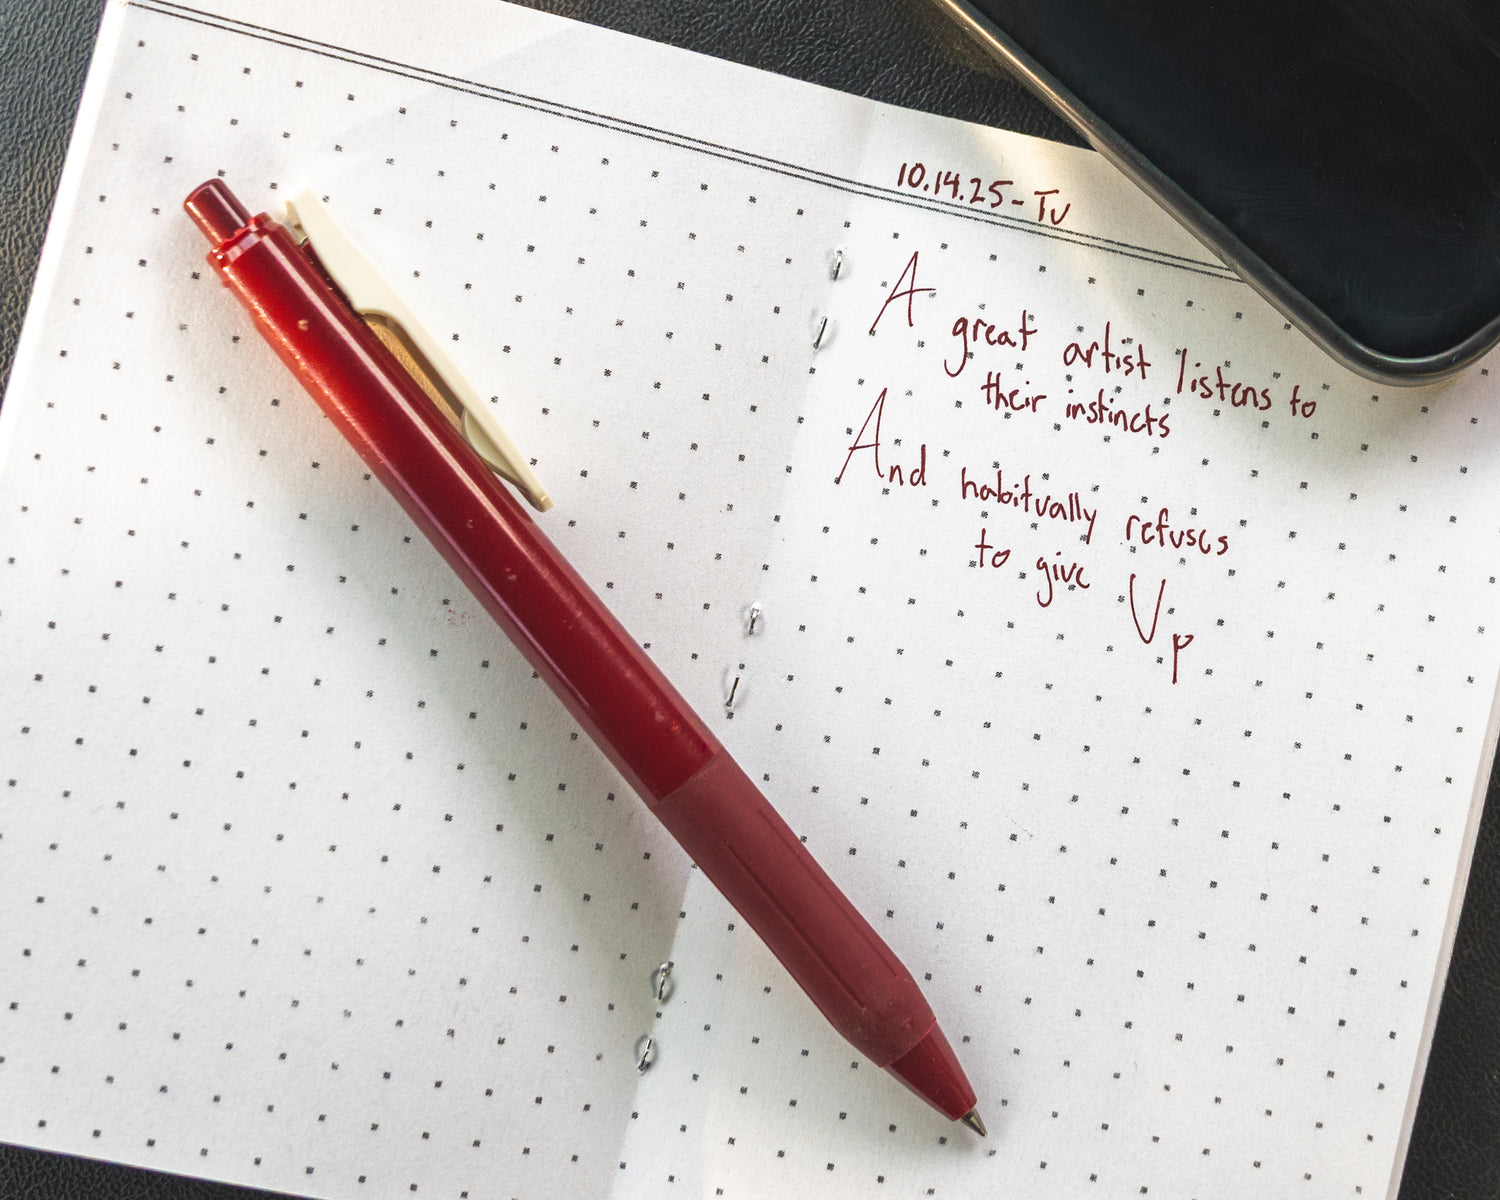 10.14.25 - Tu
A great artist listens to
their instincts
And habitually refuses
to give Up